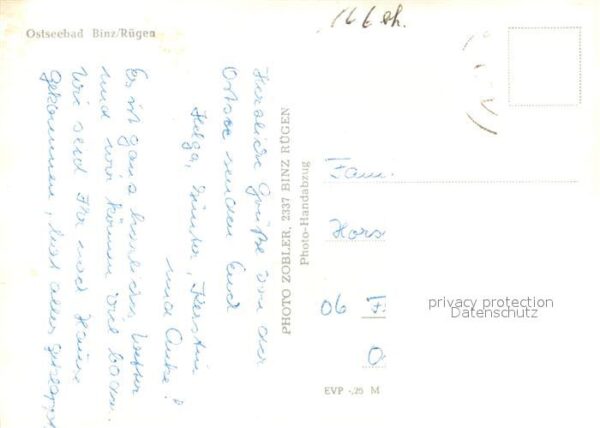 Ostseebad Binz/Rügen
Herzliche Grüße von der
Ostsee senden Euch
Helga, Günter, Kerstin
und Anke!
Es ist ganz herrliches Wetter
und wir können viel baden.
Wie seid Ihr nach Hause
gekommen, hat alles geklappt
PHOTO ZOBLER, 2337 BINZ RÜGEN
Photo-Handabzug
Fam.
Hors
06
O
EVP -,25 M
privacy protection
Datenschutz